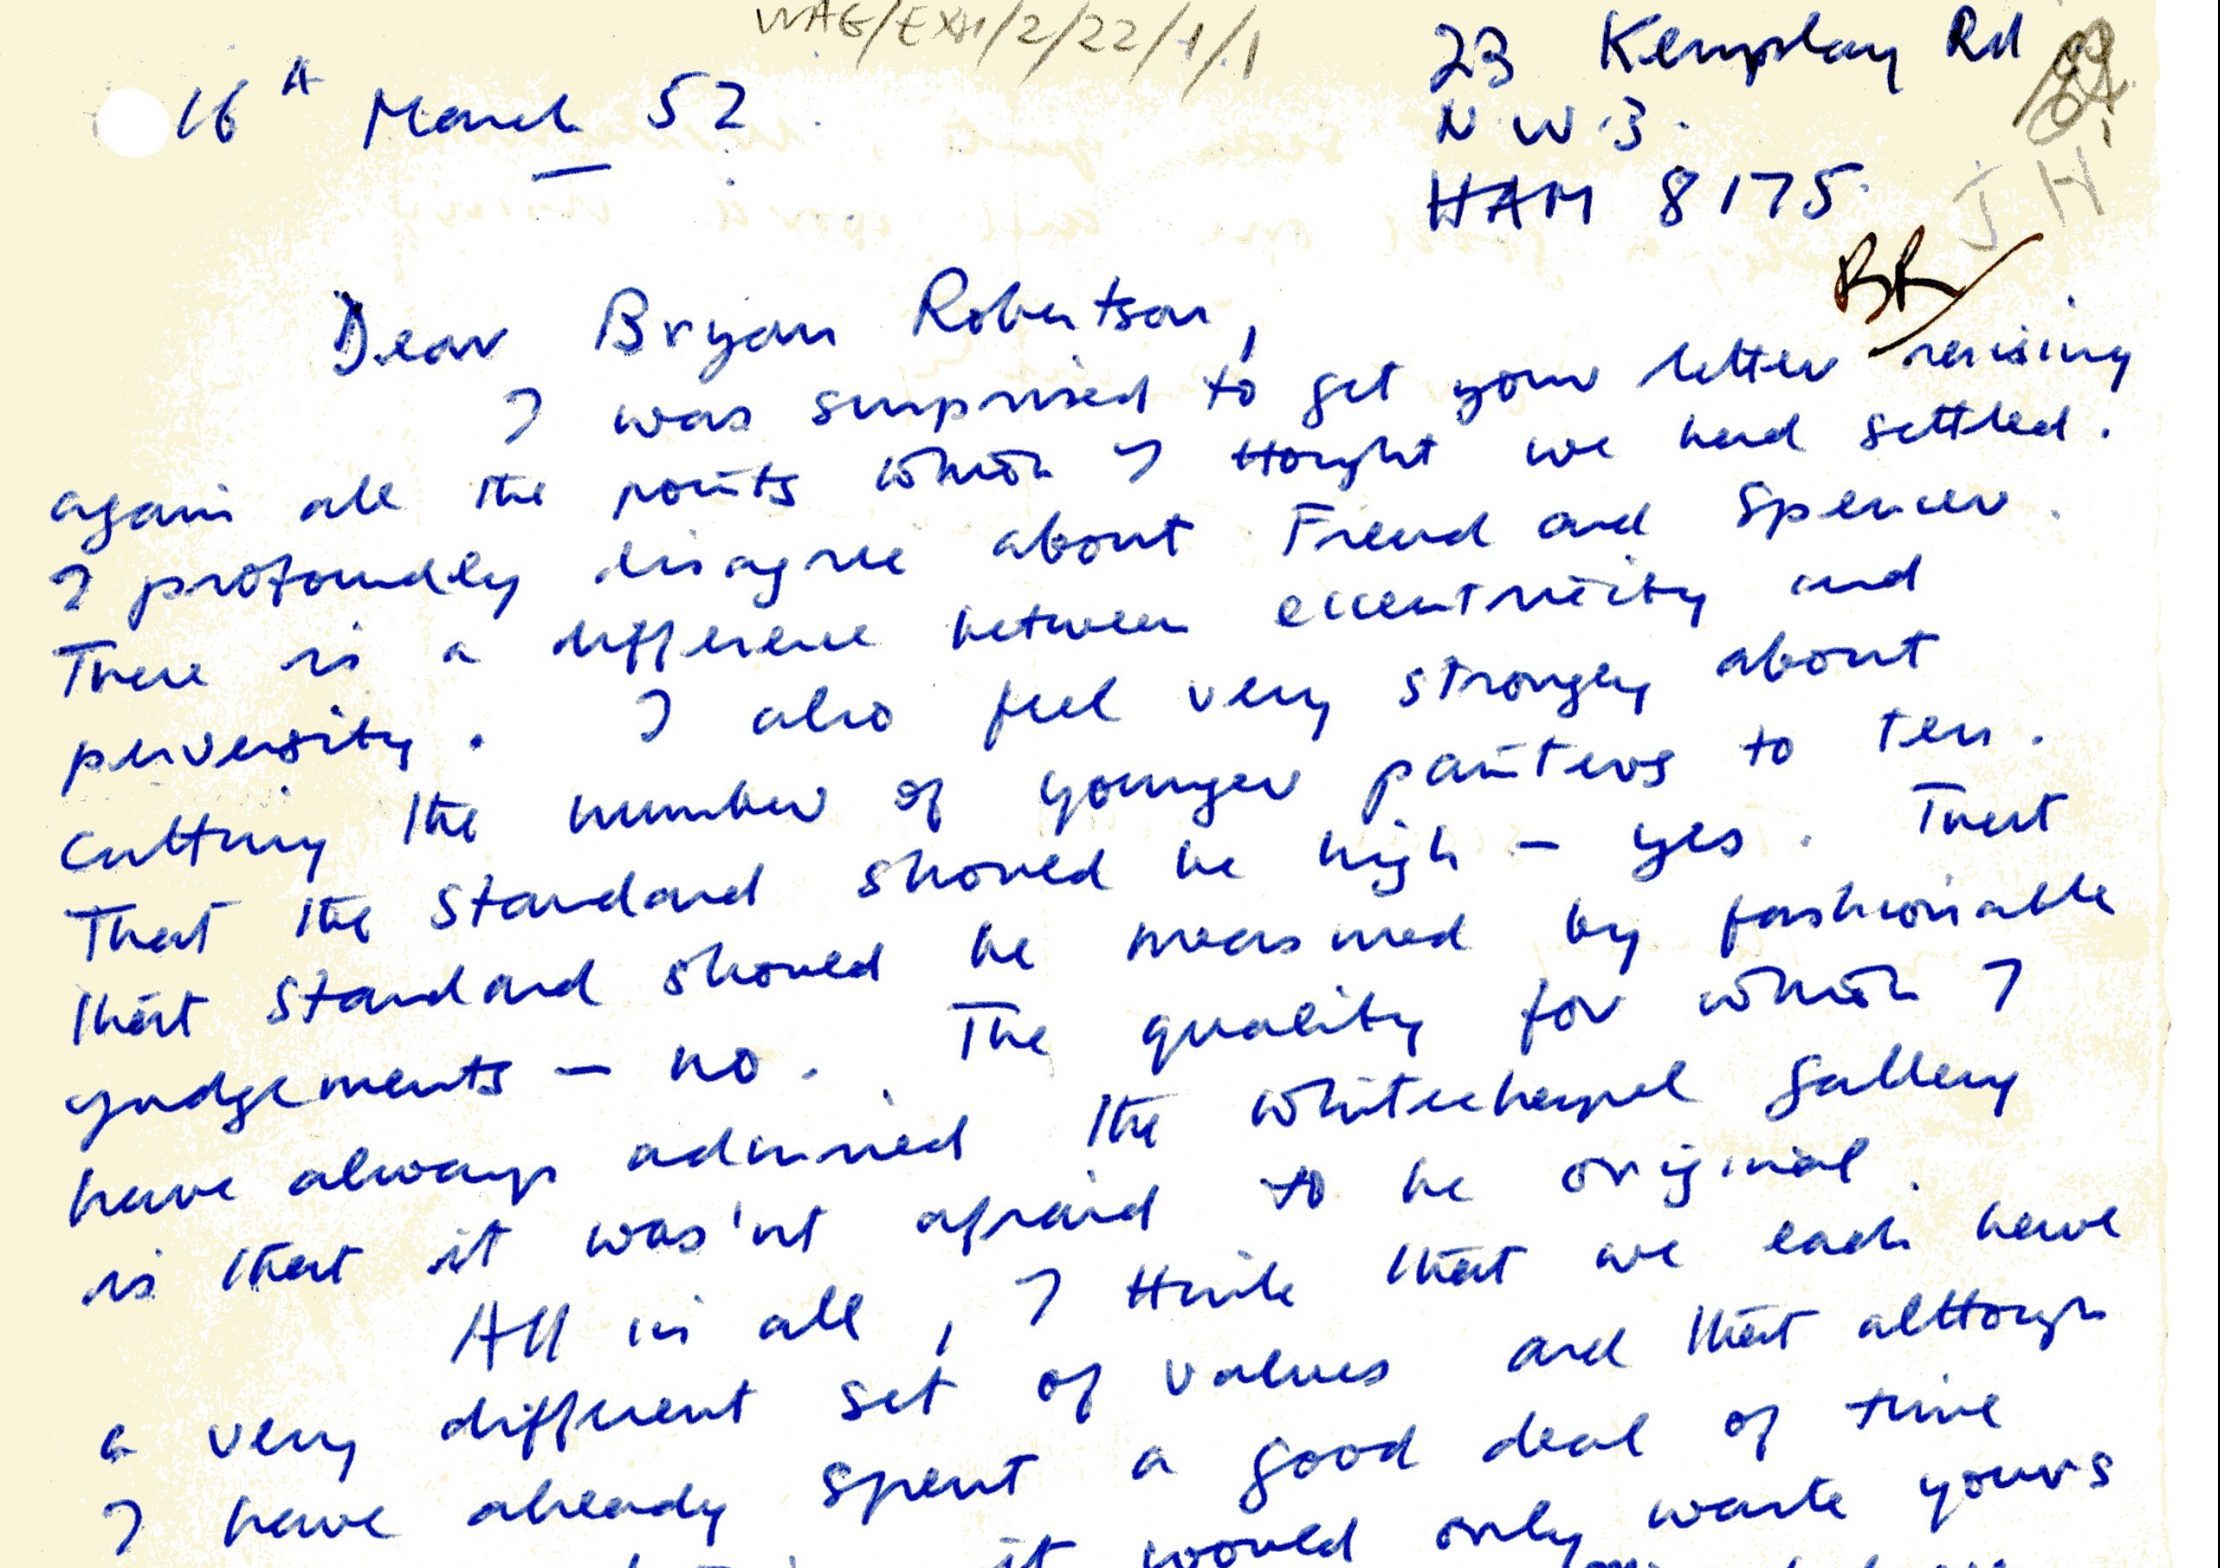 WAG/EXH/2/22/1/1
23 Kemplay Rd
16th March 52.
N.W.3.
HAM 8175.
JH
BR
Dear Bryan Robertson,
I was surprised to get your letter raising
again all the points which I thought we had settled.
I profoundly disagree about Freud and Spencer.
There is a difference between eccentricity and
perversity. I also feel very strongly about
cutting the number of younger painters to ten.
That the standard should be high – yes. That
that standard should be measured by fashionable
judgements – no. The quality for which I
have always admired the Whitechapel Gallery
is that it was'nt afraid to be original.
All in all, I think that we each have
a very different set of values and that although
I have already spent a good deal of time
it would only waste yours